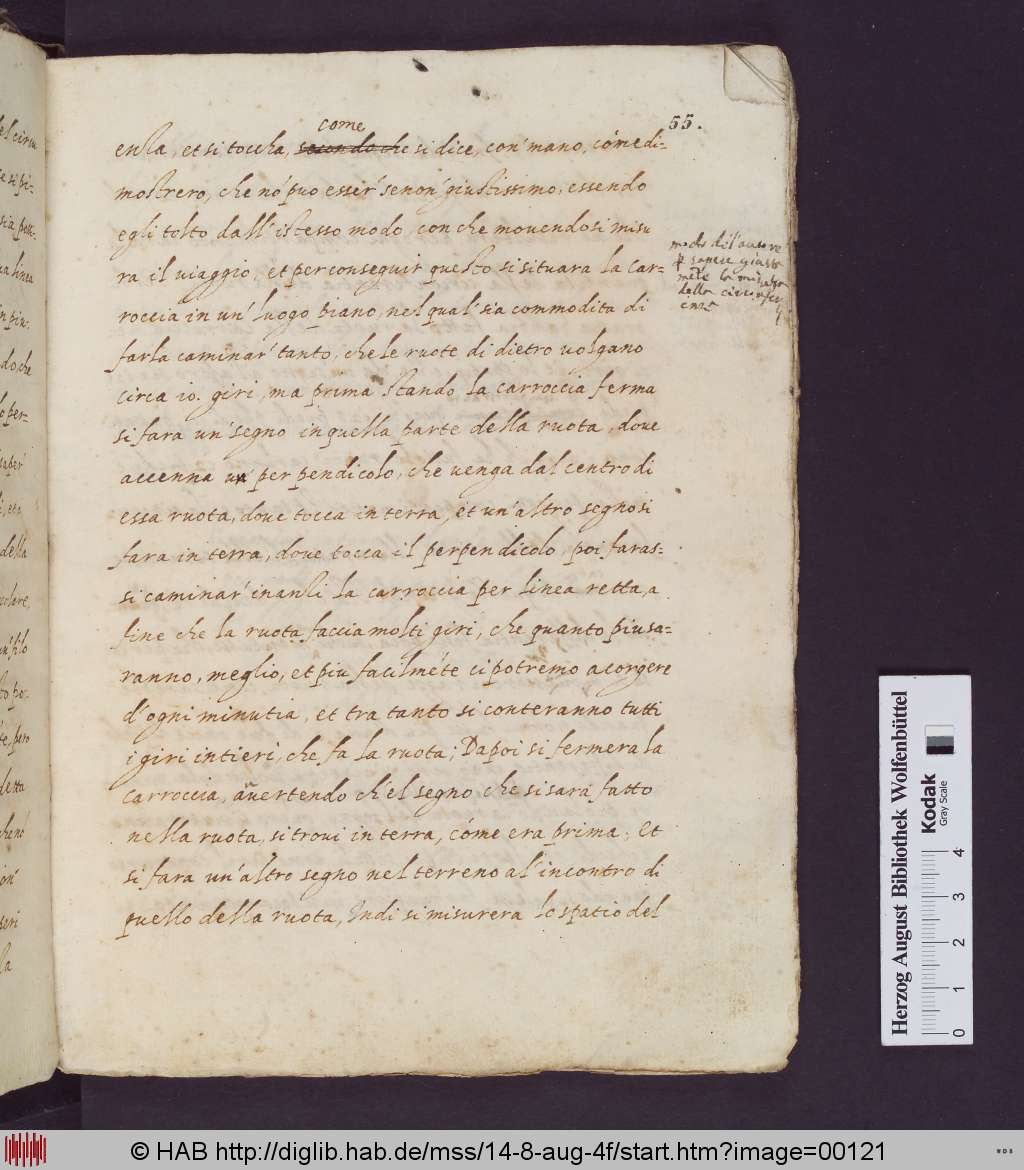 55.
come
enza, et si toccha, secondo che si dice, con' mano, cóme di=
mostrero, che nó puo esser' senon' giustissimo, essendo
egli tolto dall'istesso modo con che movendosi misu
ra il uiaggio, et per conseguir questo si situara la Car=
roccia in un' luogo piano, nel qual' sia commodita di
farla caminar' tanto, che le ruote di dietro uolgano
circa io. giri, ma prima stando la carroccia ferma
si fara un' segno in quella parte della ruota, dove
accenna un perpendicolo, che uenga dal centro di
essa ruota, dove tocca in terra, et un' altro segno si
fara in terra, dove tocca il perpendicolo, poi faras=
si caminar' inanzi la carroccia per linea retta, a
fine che la ruota faccia molti giri, che quanto piu sa=
ranno, meglio, et piu facilméte ci potremo acorgere
d'ogni minutia, et tra tanto si conteranno tutti
i giri intieri, che fa la ruota; Dapoi si fermera la
carroccia, auertendo ch'el segno che si sará fatto
nella ruota, si troui in terra, cóme era prima; Et
si fara un' altro segno nel terreno al'incontro di
quello della ruota, Indi si misurera lo spatio del
modo del'autore
p sapere giusta
méte la misura
della circonfer
enza
el circu
e si pi-
sia posti-
ua linea
in pun-
do, che
lo per-
saper'
i, etc
della
un' filo
to po-
te, pero
detta
che nó
on'
seri
la
Herzog August Bibliothek Wolfenbüttel
Kodak
Gray Scale
0 1 2 3 4
© HAB http://diglib.hab.de/mss/14-8-aug-4f/start.htm?image=00121